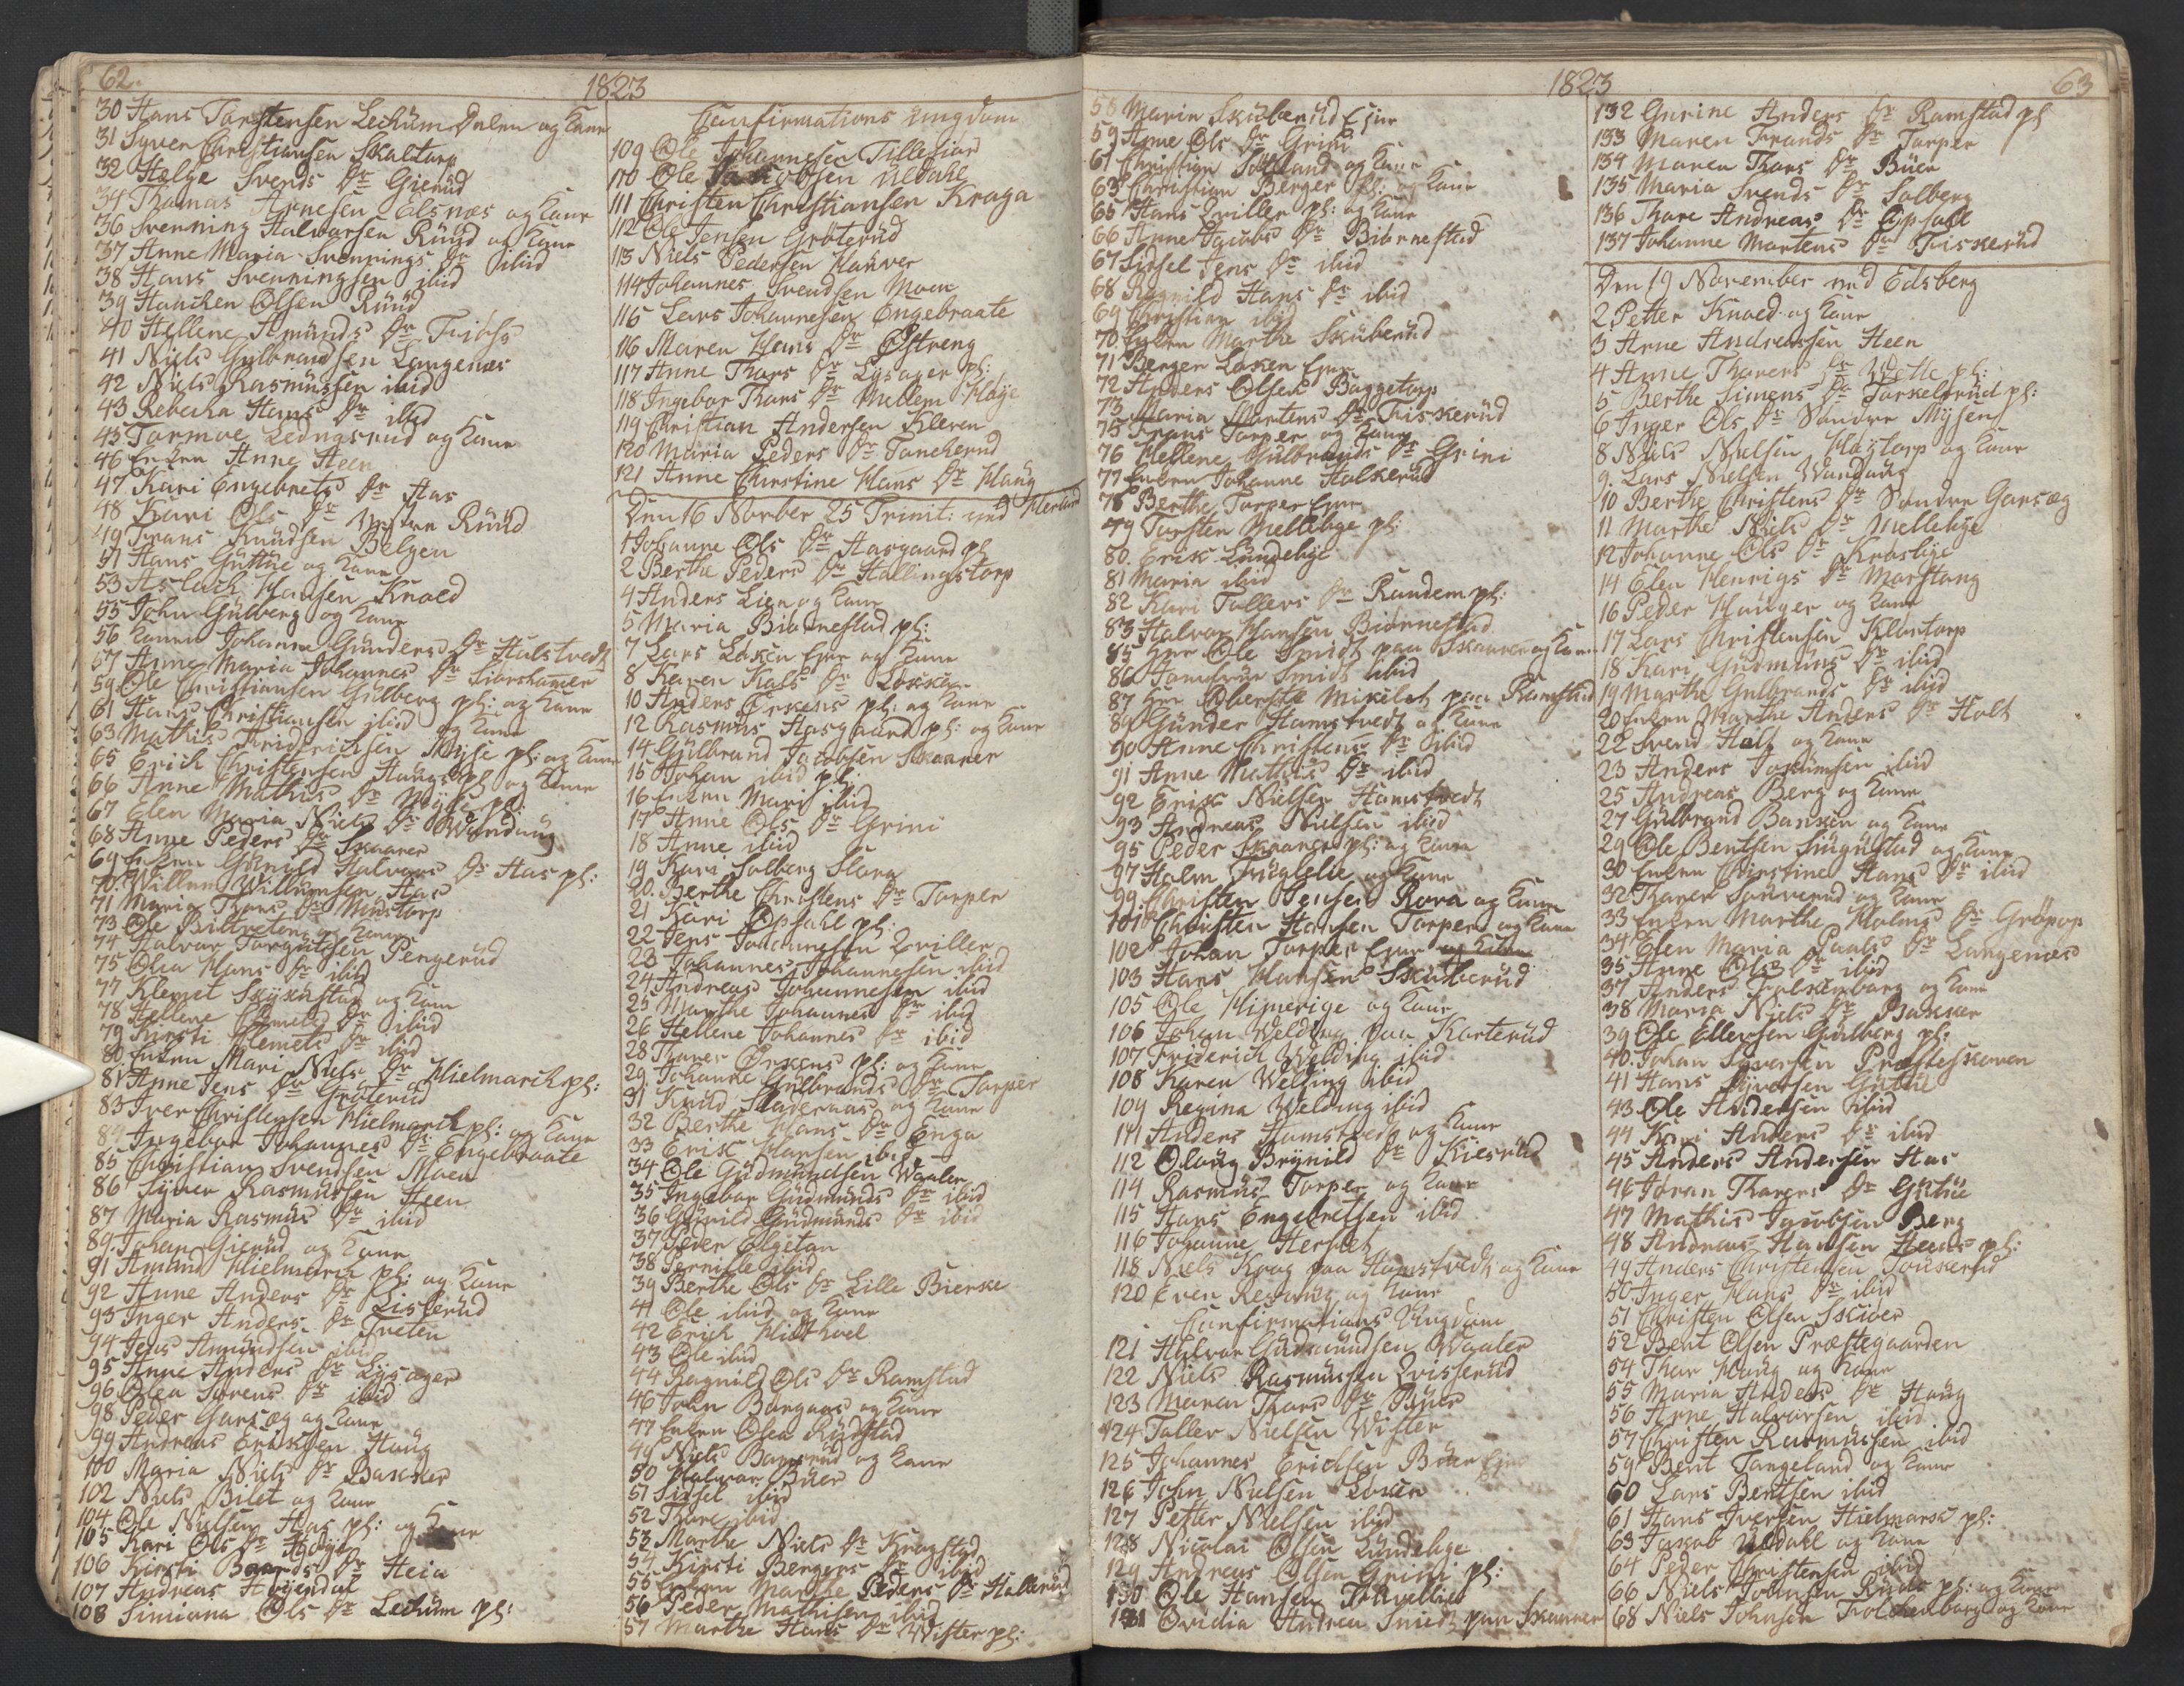 62.
1823
30 Hans Torstensen Lechum Dalen og Kone
31 Syver Christiansen Skaltorp
32 Helge Svends Dr Gierud
34 Thomas Arnesen Elsnæs og Kone
36 Svenning Halvorsen Ruud og Kone
37 Anne Maria Svennings Dr ibid
38 Hans Svenningsen ibid
39 Haachen Olsen Ruud
40 Hellene Amunds Dr
41 Niels Gulbrandsen Langenæs
42 Niels Rasmussen ibid
43 Rebecha Hans Dr ibid
45 Tormoe Lednasrud og Kone
46 Enken Anne Heen
47 Kari Engebrets Dr Aas
48 Kari Ols Dr Vestre Ruud
49 Frans Knudsen Belgen
51 Hans Guttue og Kone
53 Aslach Hansen Knoed
55 John Gulberg og Kone
56 Konen Johanne Gunders Dr Hulstvedt
57 Anne Maria Johannes Dr
59 Ole Christiansen Gulberg pl: og Kone
61 Hans Christiansen ibid og Kone
63 Mathis Friderichsen Møyse pl: og Kone
65 Erich Christensen Haugs pl og Kone
66 Anne Mathis Dr Møyse pl:
67 Elen Maria Niels Dr Wandaug
68 Anne Peders Dr Skaarer
69 Enken Gunild Halvors Dr Aas pl:
70. Willum Willumsen Aas
71 Maria Thors Dr Mustorp
73 Ole Billreten og Kone
74 Halvor Torgutsen Pengerud
75 Olea Hans Dr ibid
77 Klemet Skyxustad og Kone
78 Hellene Klemets Dr ibid
79 Kirsti Klemets Dr ibid
80 Enken Mari Niels Dr Hielmarck pl:
81 Anne Jens Dr Grøterud
83 Iver Christensen Hielmarck pl: og Kone
84 Ingebor Johannes Dr Engebraate
85 Christian Svendsen Moen
86 Syver Rasmussen Heen
87 Maria Rasmus Dr ibid
89. Johan Gierud og Kone
91 Amund Hielmarck pl: og Kone
92 Anne Anders Dr Listerud
93 Inger Anders Dr Tveten
94 Jens Amundsen ibid
95 Anne Anders Dr Lysager
96 Olea Sørens Dr ibid
98 Peder Garsæg og Kone
99 Andreas Ericksen Haug
100 Maria Niels Dr Baxker
102 Niels Bilet og Kone
104 Ole Nielsen Aas pl: og Kone
105 Kari Ols Dr Høye
106 Kirsti Baards Dr Heia
107 Andreas Høijendal
108 Simiana Ols Dr Lechum pl:
Confirmations Ungdom
109 Ole Johannesen Tillefiør
110 Ole Jakobsen Uldahl
111 Christen Christiansen Kraga
112 Ole Jensen Grøterud
113 Niels Pedersen Hanver
114 Johannes Svendsen Moen
115 Lars Johannesen Engebraate
116 Maren Hans Dr Østreng
117 Anne Thors Dr Lysager pl:
118 Ingebor Thors Dr Mellem Høye
119 Christian Andersen Kleven
120 Maria Peders Dr Tancherud
121 Anne Christine Hans Dr Haug
Den 16 Novber 25 Trinit: ved Herland
1 Johanne Ols Dr Aasgaard pl
2 Berthe Peders Dr Hallingstorp
4 Anders Lien og Kone
5 Maria Biørnestad pl:
7 Lars Løken Ejer og Kone
8 Karen Kals Dr Løkken
10 Anders Ørkens pl: og Kone
12 Rasmus Aasgaard pl: og Kone
14 Gulbrand Jacobsen Skaarer
15 Johan ibid pl:
16 Enken Mari ibid
17 Anne Ols Dr Grini
18 Anne ibid
19 Kari Solberg Slora
20. Berthe Christens Dr Torper
21 Kari Opsahl pl:
22 Jens Johannesen Qviller
23 Johannes Johannesen ibid
24 Andreas Johannesen ibid
25 Marthe Johannes Dr ibid
26 Hellene Johannes Dr ibid
28 Thorer Ørkens pl: og Kone
29. Johanne Gulbrands Dr Torper
31 Knud Sladeraas og Kone
32 Berthe Hans Dr Enga
33 Erik Hansen ibid
34 Ole Gudmundsen Waaler
35 Ingebor Gudmunds Dr ibid
36 Gunild Gudmunds Dr ibid
37 Peder Elgetun
38 Pernille ibid
39 Berthe Ols Dr Lille Bierke
41 Ole ibid og Kone
42 Erich Midthoel
43 Ole ibid
44 Ragnild Ols Dr Ramstad
46 John Bøngaas og Kone
47 Enken Olea Rudstad
49 Niels Bamrud og Kone
50 Halvor Buer
51 Sidsel ibid
52 Thore ibid
53 Marthe Niels Dr Kragstad
54 Kirsti Bergers Dr ibid
55 Enken Marthe Peders Dr Hallerud
56 Peder Mathisen ibid
57 Marthe Hans Dr Wister pl:
1823
63
58 Marin Skuberud Ejer
59 Anne Ols Dr Grini
61 Christian Sottland og Kone
63 Christian Berger pl: og Kone
65 Hans Qviller pl: og Kone
66 Anne Jacobs Dr Biørnestad
67 Sidsel Jens Dr ibid
68 Ragnild Hans Dr ibid
69 Christian ibid
70. Enken Marthe Skuberud
71 Berger Løken Ejer
72 Anders Olsen Baggetorp
73 Maria Mortens Dr Fiskerud
75 Frans Torper og Kone
76 Hellene Gulbrands Dr Grini
77 Enken Johanne Halkerud
78 Berthe Torper Ejer
79 Torsten Mellebye pl:
80. Erik Lundebye
81 Maria ibid
82 Kari Tollers Dr Rundem pl:
83 Halvor Hansen Biørnestad
85 Herr Ole Smidt paa Skaarer og Kone
86 Jomfrue Smidt ibid
87 Herr Oberste Mikelet paa Ramstad
89 Gunder Hamstvedt og Kone
90 Anne Christens Dr ibid
91 Anne Mathis Dr ibid
92 Erik Nielsen Hamstvedt
93 Andreas Nielsen ibid
95 Peder Skaarer pl: og Kone
97 Holm Fuglelie og Kone
99. Christen Jensen Rova og Kone
101 Christen Hansen Torper og Kone
102 Johan Torper Ejer og Kone
103 Hans Hansen Skuberud
105 Ole Himerige og Kone
106 Johan Welding paa Korterud
107 Friderich Welding ibid
108 Karen Welding ibid
109 Regina Welding ibid
111 Anders Hamstvedt og Kone
112 Olaug Brynild Dr Kiesrud
114 Rasmus Torper og Kone
115 Hans Engebretsen ibid
116 Johanne Herslet
118 Niels Krog paa Hamstvedt og Kone
120 Even Revaug og Kone
Confirmations Ungdom
121 Halvor Gudmundsen Waaler
122 Niels Rasmussen Qvisserud
123 Maren Thors Dr Buer
124 Toller Nielsen Wister
125 Johannes Erichsen Buer Ejer
126 John Nielsen Løken
127 Petter Nielsen ibid
128 Nicolai Olsen Lundebye
129 Andreas Olsen Grini pl:
130 Ole Hansen
131 Ovidia Andrea Smidt paa Skaarer
132 Gurine Anders Dr Ramstad pl
133 Maren Frands Dr Torper
134 Maren Thors Dr Buer
135 Maria Svends Dr Solberg
136 Thore Andreas Dr Opsahl
137 Johanne Mortens Dr Fuskerud
Den 19 November ved Edsberg
2 Petter Knoed og Kone
3 Arne Andreassen Heen
4 Anne Thorers Dr Wette pl:
5 Berthe Simens Dr Torkelsrud pl:
6 Inger Ols Dr Søndre Mysen
8 Niels Nielsen Høytorp og Kone
9. Lars Nielsen Wandaug
10 Berthe Christens Dr Søndre Garsæg
11 Marthe Niels Dr Mellebye
12 Johanne Ols Dr Krosbye
14 Elen Henrigs Dr Morstang
16 Peder Hauger og Kone
17 Lars Christensen Klantorp
18 Kari Gudmuns Dr ibid
19 Marthe Gulbrands Dr ibid
20 Enken Marthe Anders Dr Holt
22 Svend Holt og Kone
23 Anders Joxumsen ibid
25 Andreas Berg og Kone
27 Gulbrand Banken og Kone
29 Ole Bentsen Singustad og Kone
30 Enken Christine Hans Dr ibid
32 Thorer Sanverud og Kone
33 Enken Marthe Holms Dr Grøpop
34 Elen Maria Paals Dr Langenæs
35 Anne Ols Dr ibid
37 Anders Folkenborg og Kone
38 Maria Niels Dr Baxker
39 Ole Ellevsen Gulberg pl:
40. Johan Syversen Præsteskoven
41 Hans Syversen Guttue
43 Ole Andersen ibid
44 Kari Anders Dr ibid
45 Anders Andersen Aas
46 Joran Thorers Dr Guttue
47 Mathis Jacobsen Berg
48 Andreas Hansen Heens pl:
49 Anders Christensen Touserud
50 Inger Hans Dr ibid
51 Christen Olsen Skiver
52 Bent Olsen Præstegaarden
54 Thor Haug og Kone
55 Maria Anders Dr Haug
56 Arne Halvorsen ibid
57 Christen Rasmussen ibid
59 Bent Tangeland og Kone
60 Lars Bentsen ibid
61 Hans Iversen Hielmark pl:
63 Jakob Uldahl og Kone
64 Peder Christensen ibid
66 Niels Johnsen Ruds pl: og Kone
68 Niels Johnsen Folckenborg og Kone